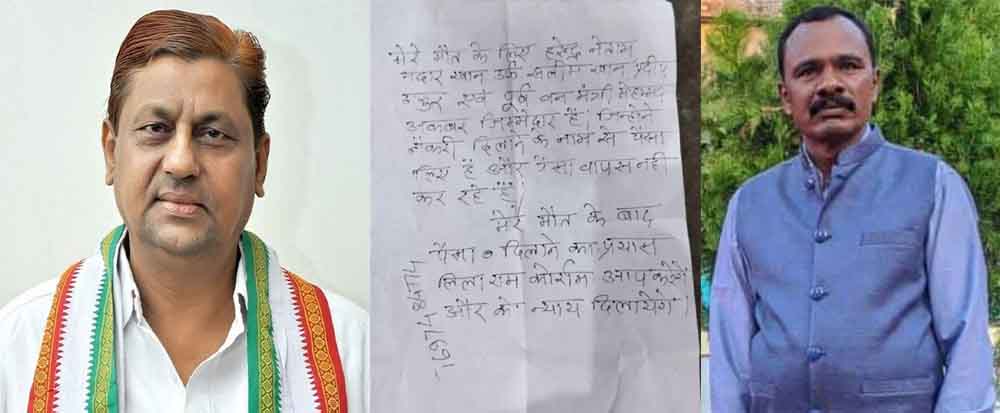 मेरे मौत के लिए हरेन्द्र नेताम
मदार खान उर्फ सलीम खान प्रदीप
ठाकुर एवं पूर्व वन मंत्री मोहम्मद
अकबर जिम्मेदार हैं जिन्होंने
नौकरी दिलाने के नाम से पैसा
लिए हैं और पैसा वापस नही
कर रहे हैं
मेरे मौत के बाद
पैसा दिलाने का प्रयास
आप करेंगे
और न्याय दिलायेंगे।